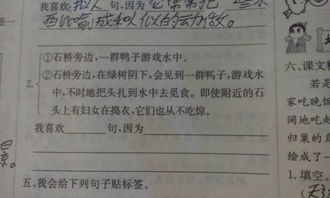 我喜欢拟人句,因为它常常把一些东
西比喻成和人似的动做。
①石桥旁边,一群鸭子游戏水中。
2.
②石桥旁边,在绿树阴下,会见到一群鸭子,游戏水
中,不时地把头扎到水中去觅食。即使附近的石
头上有妇女在捣衣,它们也从不吃惊。
我喜欢 句,因为
五、我会给下列句子贴标签。
六、课文
家吃晚饭
阔地吃起
若果是
绘成了一
1. 填空。